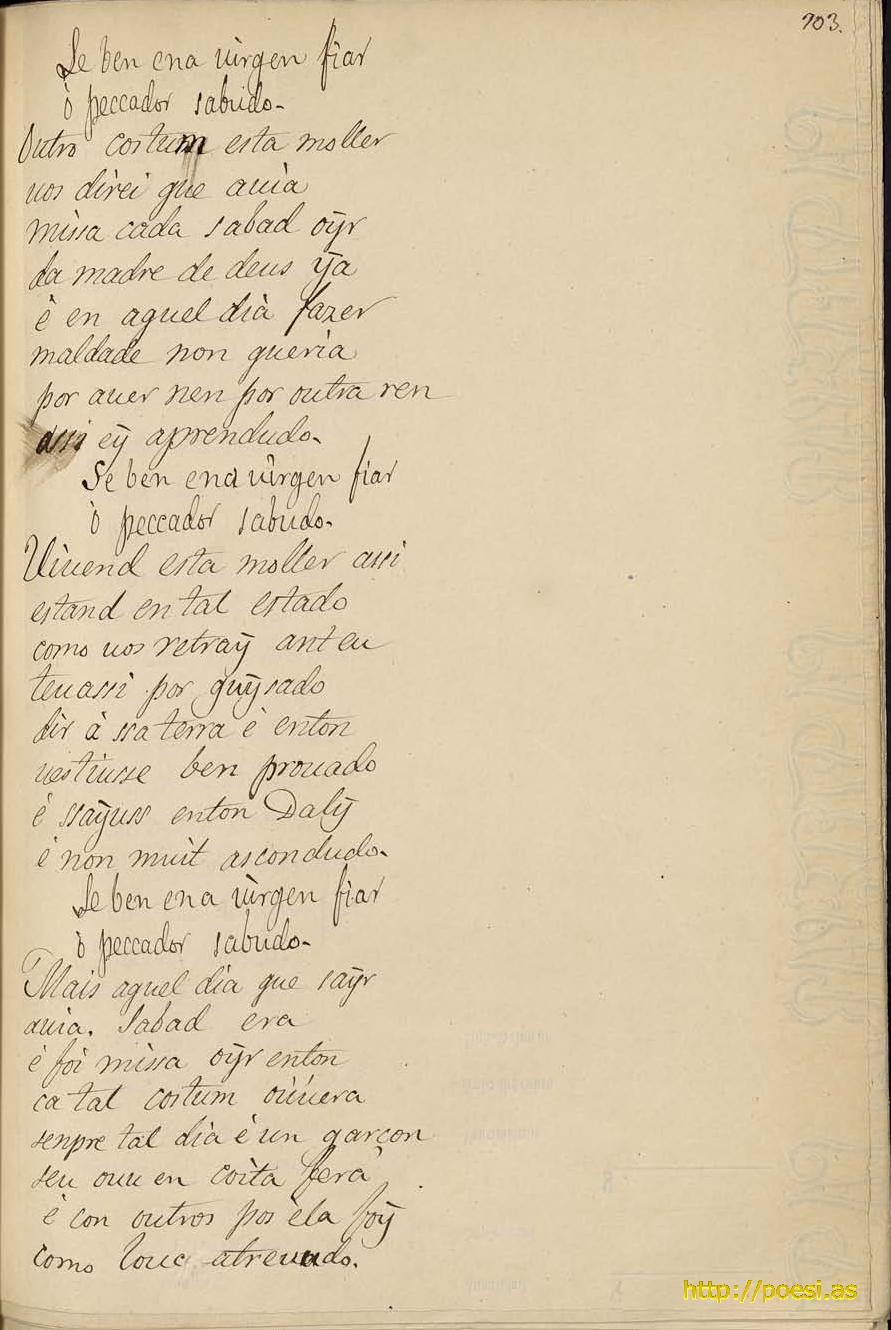 703.
Se ben ena uirgen fiar
ò peccador sabudo.
Outro costum esta moller
uos direi que auia
missa cada sabad oÿr
da madre de deus ÿa
è en aquel dia fazer
maldade non queria
por auer nen por outra ren
assi eÿ aprendudo.
Se ben ena uirgen fiar
ò peccador sabudo.
Uiuend esta moller assi
estand en tal estado
como uos retraÿ ant eu
teu assi por guÿsado
dir à ssa terra è enton
uestiusse ben prouado
è ssaÿuss enton Dalÿ
è non muit ascondudo.
Se ben ena uirgen fiar
ò peccador sabudo.
Mais aquel dia que saÿr
auia. Sabad era
è foi missa oÿr enton
ca tal costum oúuera
senpre tal dia è un garçon
seu ouu en coita fera
è con outros pos ela foÿ
como louc atreuudo.
http://poesi.as